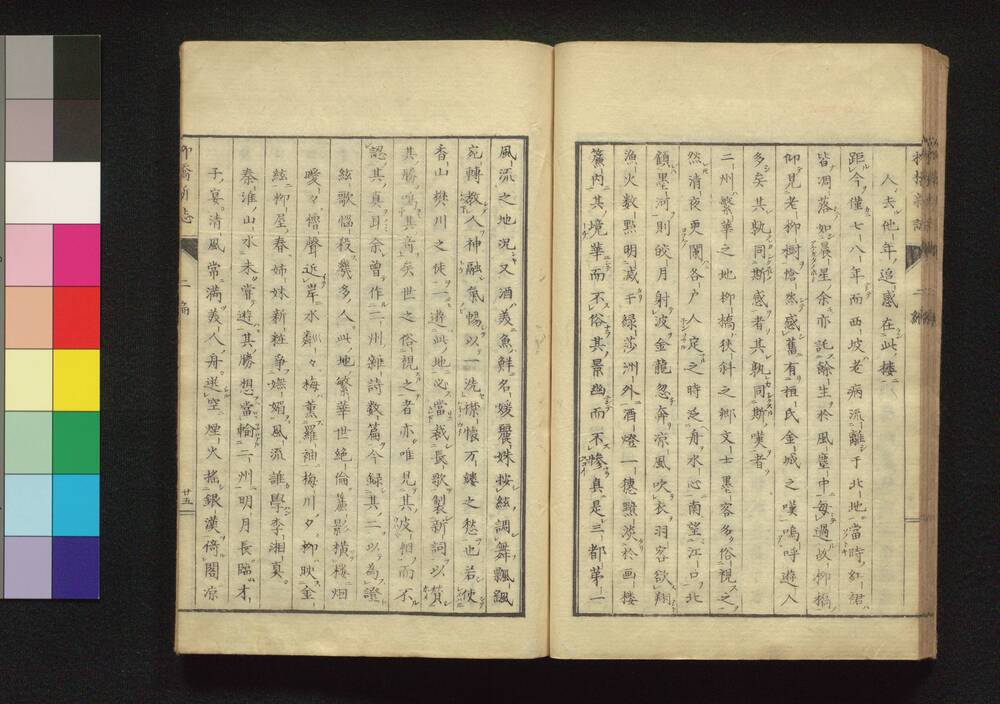 人去他年追感在此楼
距今僅七八年而西坡老病流離于北地當時紅裙
皆凋落如晨星余亦託餘生於風塵中毎過故柳橋
仰見老柳樹愴然感舊有桓氏金城之嘆嗚呼遊人
多矣其孰同斯感者其孰同斯嘆者
二州繁華之地柳橋狭斜之郷文士墨客多俗視之
然清夜更闌各戸人定之時泛舟水心南望江口北
顧墨河則皎月射波金龍忽奔凉風吹衣羽客欲翔
漁火数點明滅于緑莎洲外酒燈一穂黯淡於画楼
簾内其境華而不俗其景幽而不惨真是三都第一
風流之地况又酒美魚鮮名媛麗姝按絃調舞飄颻
宛轉教人神融氣暢以一洗襟懐万縷之愁也若使
香山樊川之徒一遊此地必當裁長歌製新詞以賛
其勝鳴其音矣世之俗視之者亦唯見其皮相而不
認其真耳余曽作二州雑詩数篇今録其二以為證
絃歌惱殺幾多人此地繁華世絶倫簾影横桜烟
曖々櫓聲近岸水粼々梅薫羅袖梅川夕柳映金
絃柳屋春姉妹新粧争嫵媚風流誰學李湘真
秦淮山水未嘗遊其勝想當輸二州明月長臨才
子宴清風常満美人舟遥空煙火揺銀漢倚閣凉
柳橋新誌 二編 廿五